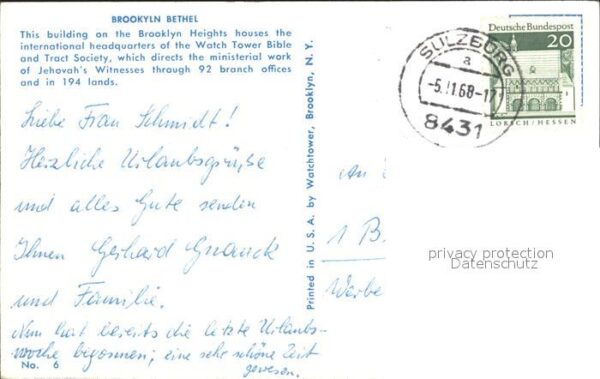 BROOKYLN BETHEL
This building on the Brooklyn Heights houses the
international headquarters of the Watch Tower Bible
and Tract Society, which directs the ministerial work
of Jehovah's Witnesses through 92 branch offices
and in 194 lands.
Liebe Frau Schmidt!
Herzliche Urlaubsgrüße
und alles Gute senden
Ihnen Gerhard
und Familie.
Nun hat bereits die letzte Urlaubs-
woche begonnen; eine sehr schöne Zeit
gewesen.
No. 6
Printed in U.S.A. by Watchtower, Brooklyn, N.Y.
SULZBURG
a
-5.11.68-17
8431
Deutsche Bundespost
20
LORSCH/HESSEN
An
1 B
Werbe
privacy protection
Datenschutz